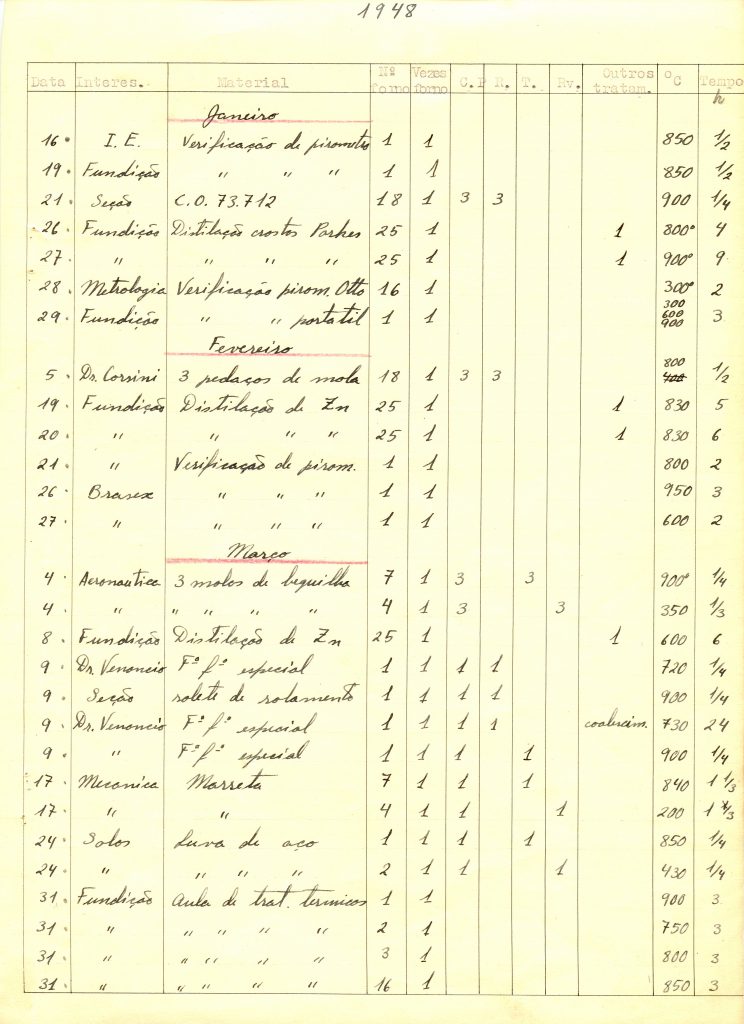 1948
Data Interes. Material Nº forno Vezes forno C.P R. T. Rv. Outros tratam. ºC Tempo h
Janeiro
16 · I. E. Verificação de pirometro 1 1 850 1/2
19 · Fundição " " " 1 1 850 1/2
21 · Seção C.O. 73.712 18 1 3 3 900 1/4
26 · Fundição Distilação crostos Parkes 25 1 1 800º 4
27 · " " " " " 25 1 1 900º 9
28 · Metrologia Verificação pirom. Otto 16 1 300º 2
29 · Fundição " " portatil 1 1 300 600 900 3
Fevereiro
5 · Dr. Corsini 3 pedaços de mola 18 1 3 3 800 400 1/2
19 · Fundição Distilação de Zn 25 1 1 830 5
20 · " " " " 25 1 1 830 6
21 · " Verificação de pirom. 1 1 800 2
26 · Brasex " " " 1 1 950 3
27 · " " " " 1 1 600 2
Março
4 · Aeronautica 3 molos de bequilha 7 1 3 3 900º 1/4
4 · " " " " " 4 1 3 3 350 1/3
8 · Fundição Distilação de Zn 25 1 1 600 6
9 · Dr. Venancio Fº fº especial 1 1 1 1 720 1/4
9 · Seção rolete de rolamento 1 1 1 1 900 1/4
9 · Dr. Venancio Fº fº especial 1 1 1 1 coalescim. 730 24
9 · " Fº fº especial 1 1 1 1 900 1/4
17 · Mecanica Marreta 7 1 1 1 840 1 1/3
17 · " " 4 1 1 1 200 1 1/3
24 · Solos Luva de aço 1 1 1 1 850 1/4
24 · " " " " 2 1 1 1 430 1/4
31 · Fundição Aula de trat. termicos 1 1 900 3
31 · " " " " " 2 1 750 3
31 · " " " " " 3 1 800 3
31 · " " " " " 16 1 850 3